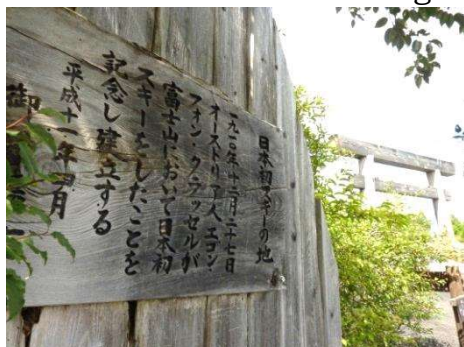 日本初スキーの地
一九一〇年十二月二十七日
オーストリア人エゴン・
フォン・クラッセルが
富士山において日本初
スキーをしたことを
記念し建立する
平成十一年四月
御